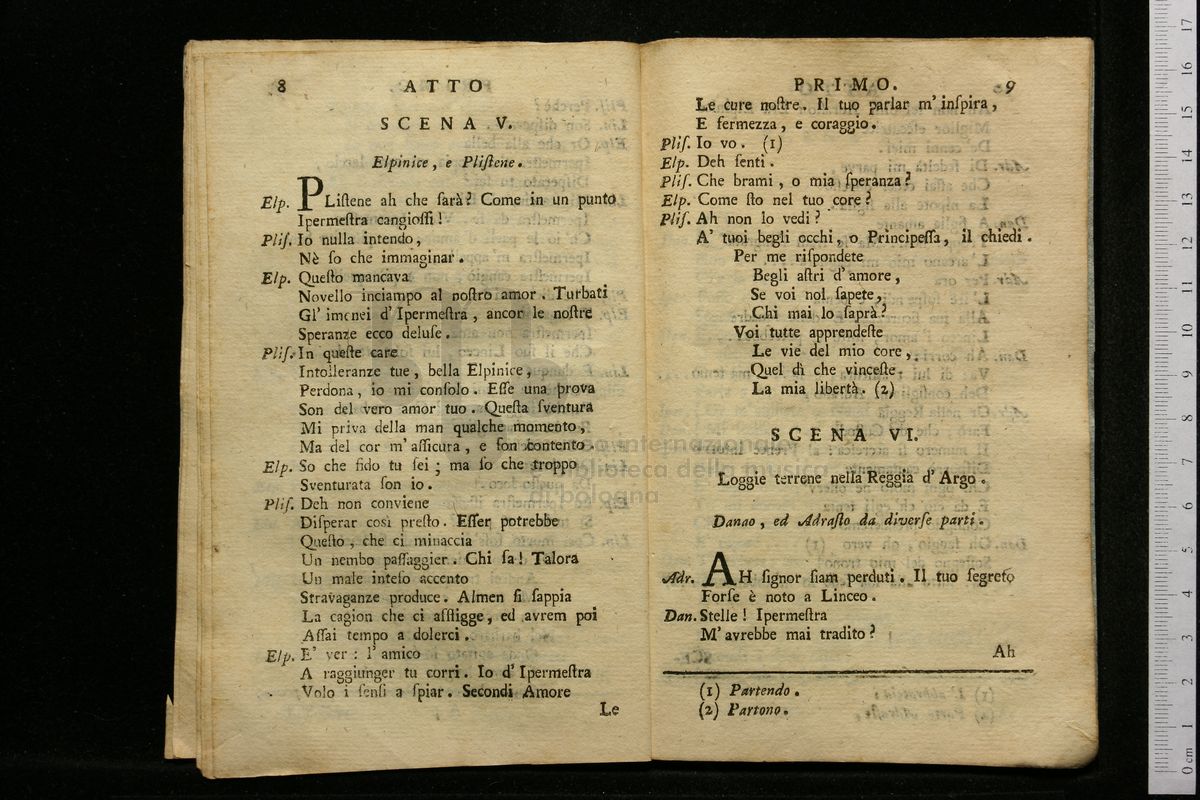 8 ATTO
SCENA V.
Elpinice, e Pliſtene.
Elp. PLiſtene ah che ſarà? Come in un punto
Ipermeſtra cangioſſi!
Pliſ. Io nulla intendo,
Nè ſo che immaginar.
Elp. Queſto mancava
Novello inciampo al noſtro amor. Turbati
Gl' imenei d' Ipermeſtra, ancor le noſtre
Speranze ecco deluſe.
Pliſ. In queſte care
Intolleranze tue, bella Elpinice,
Perdona, io mi conſolo. Eſſe una prova
Son del vero amor tuo. Queſta ſventura
Mi priva della man qualche momento,
Ma del cor m' aſſicura, e ſon contento.
Elp. So che fido tu ſei; ma ſo che troppo
Sventurata ſon io.
Pliſ. Deh non conviene
Diſperar così preſto. Eſſer potrebbe
Queſto, che ci minaccia
Un nembo paſſaggier. Chi ſa! Talora
Un male inteſo accento
Stravaganze produce. Almen ſi ſappia
La cagion che ci affligge, ed avrem poi
Aſſai tempo a dolerci.
Elp. E' ver: l' amico
A raggiunger tu corri. Io d' Ipermeſtra
Volo i ſenſi a ſpiar. Secondi Amore
Le
PRIMO. 9
Le cure noſtre. Il tuo parlar m' inſpira,
E fermezza, e coraggio.
Pliſ. Io vo. (1)
Elp. Deh ſenti.
Pliſ. Che brami, o mia ſperanza?
Elp. Come ſto nel tuo core?
Pliſ. Ah non lo vedi?
A' tuoi begli occhi, o Principeſſa, il chiedi.
Per me riſpondete
Begli aſtri d' amore,
Se voi nol ſapete,
Chi mai lo ſaprà?
Voi tutte apprendeſte
Le vie del mio core,
Quel dì che vinceſte
La mia libertà. (2)
SCENA VI.
Loggie terrene nella Reggia d' Argo.
Danao, ed Adraſto da diverſe parti.
Adr. AH ſignor ſiam perduti. Il tuo ſegreto
Forſe è noto a Linceo.
Dan. Stelle! Ipermeſtra
M' avrebbe mai tradito?
Ah
(1) Partendo.
(2) Partono.
internazionale
biblioteca della musica
di bologna
0 cm 1 2 3 4 5 6 7 8 9 10 11 12 13 14 15 16 17